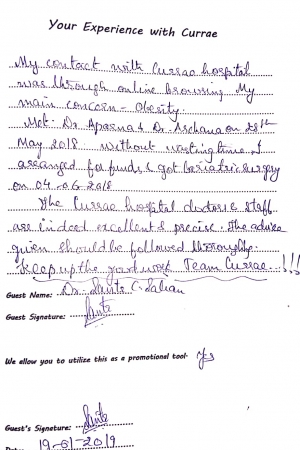 Your Experience with Currae
My contact with Currae hospital
was through online browsing. My
main concern - Obesity.
Met. Dr. Aparna & Dr. Archana on 28th
May 2018 without wasting time I
arranged for funds & got bariatric surgery
on 04-06-2018
The Currae hospital doctors & staff
are indeed excellent & precise. The advice
given should be followed thoroughly.
Keep up the good work Team Currae..!!!
Guest Name: Dr. C. Salian
Guest Signature:
We allow you to utilize this as a promotional tool- Yes
Guest's Signature:
Date: 19-01-2019